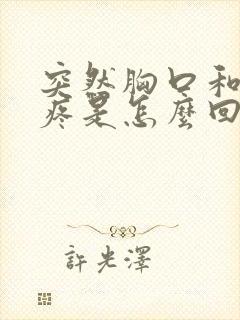 突然胸口和
疼是怎麼回
許光澤